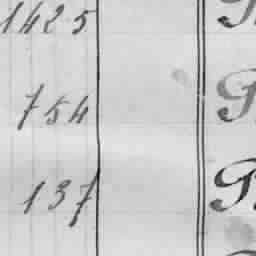 1425
754
137